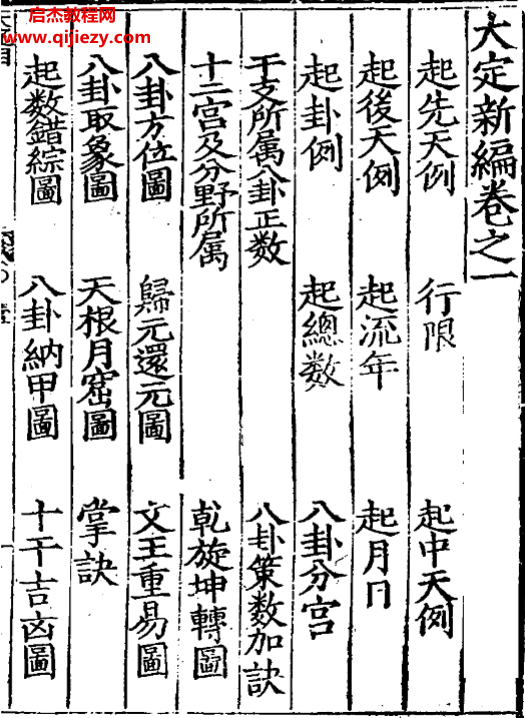 启杰教程网
www.qijiezy.com
大定新編卷之一
起先天例 行限 起中天例
起後天例 起流年 起月日
起卦例 起總数 八卦分宫
干支所属八卦正数 八卦策数加訣
十二宫及分野所属 乾旋坤轉圖
八卦方位圖 歸元還元圖 文王重易圖
八卦取象圖 天根月窟圖 掌訣
起数錯綜圖 八卦納甲圖 十干吉凶圖